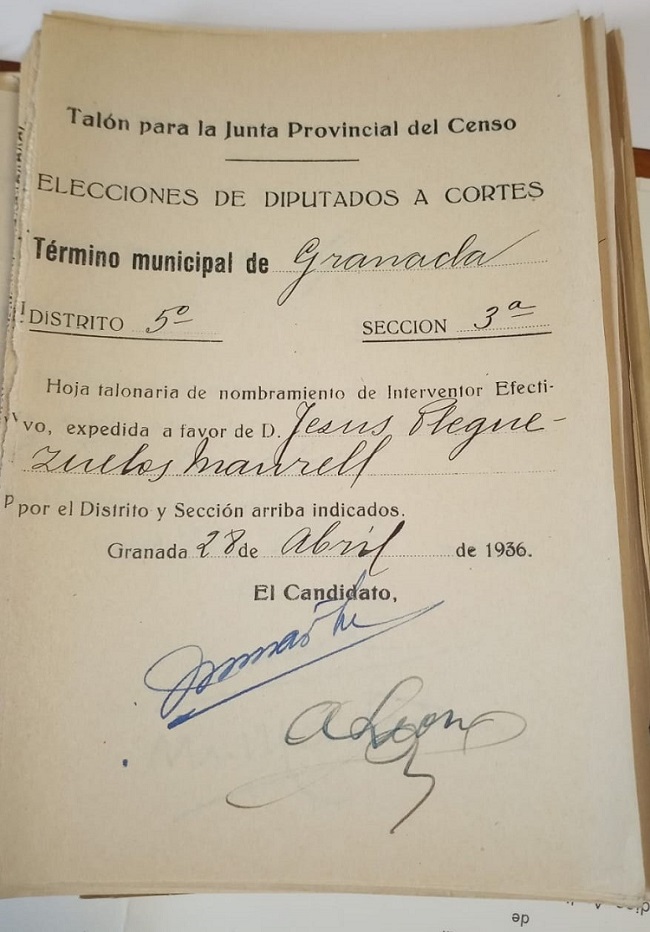 Talón para la Junta Provincial del Censo
ELECCIONES DE DIPUTADOS A CORTES
Término municipal de Granada
DISTRITO 5º SECCION 3ª
Hoja talonaria de nombramiento de Interventor Efecti-
vo, expedida a favor de D. Jesus Plegue-
zuelos Maurell
por el Distrito y Sección arriba indicados.
Granada 28 de Abril de 1936.
El Candidato,
de